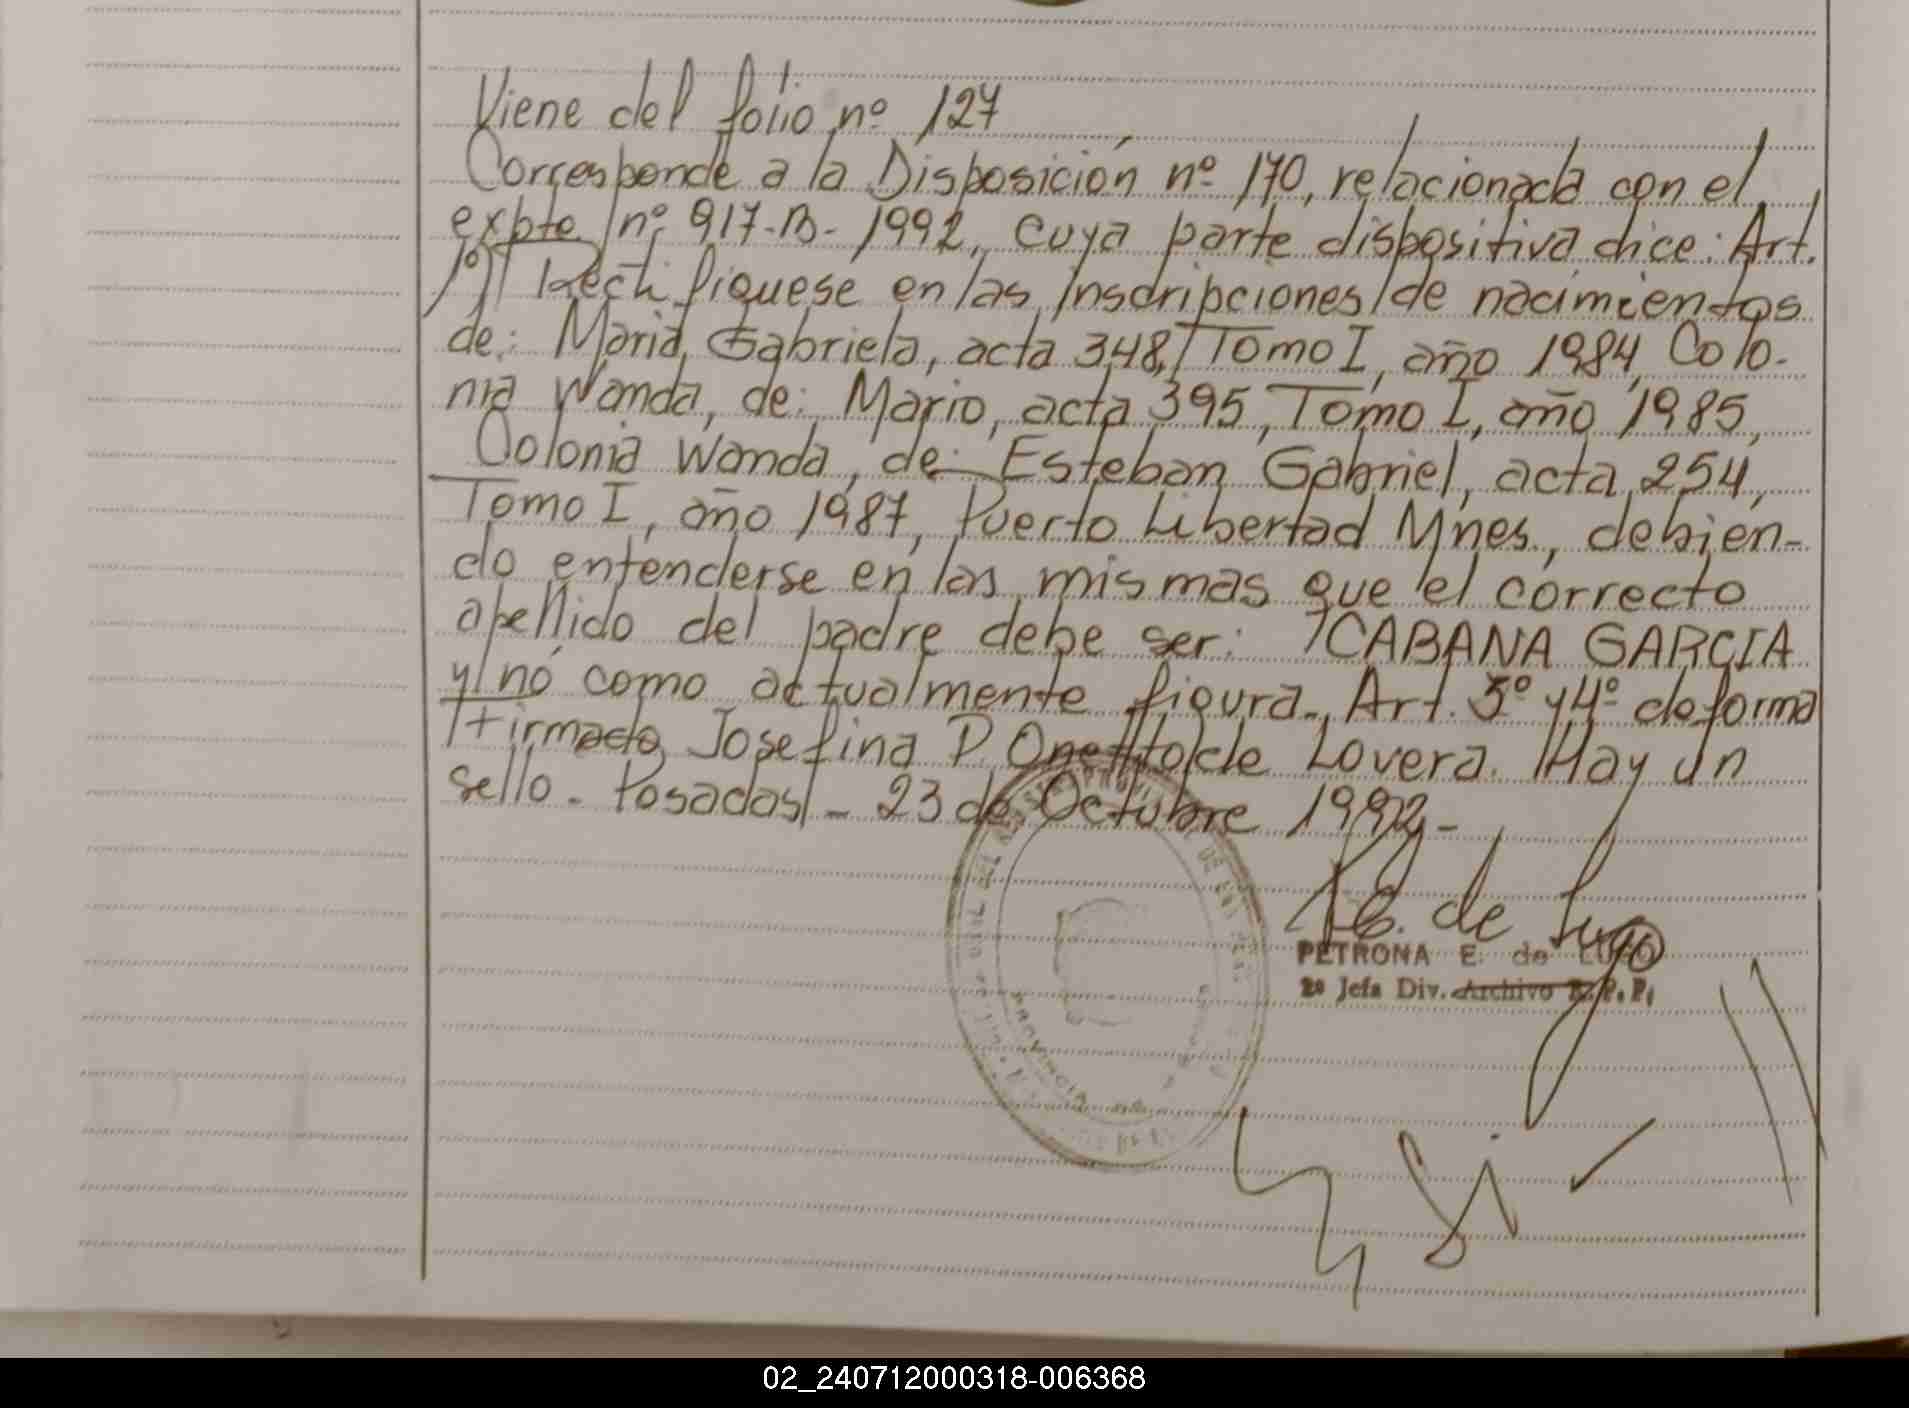 Viene del folio nº 127
Corresponde a la Disposición nº 170, relacionada con el
expte nº 917-B-1992, cuya parte dispositiva dice: Art.
1º) Rectifiquese en las inscripciones de nacimientos
de: Maria Gabriela, acta 348, Tomo I, año 1984, Colo-
nia Wanda, de: Mario, acta 395, Tomo I, año 1985,
Colonia Wanda, de: Esteban Gabriel, acta 254,
Tomo I, año 1987, Puerto Libertad Mnes., debien-
do entenderse en las mismas que el correcto
apellido del padre debe ser: CABANA GARCIA
y no como actualmente figura. Art. 3º y 4º de forma
Firmado Josefina P. Onetto de Lovera. Hay un
sello. Posadas - 23 de Octubre 1992.-
de Lugo
PETRONA E. de LUGO
2º Jefa Div. Archivo R. P. P.
PROVINCIA
02_240712000318-006368